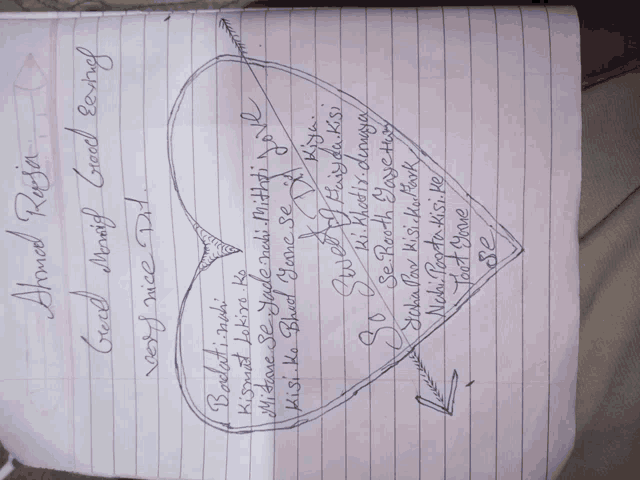 Ahmed Raja
Good Mornig Good Eevnig
very nice Dil.
Badalti nahi
Kismat Lokiro. Ko
Mitane se yade nahi Mithti Love
Kisi. Ko Bhul Yane se
Kiya.
So Sweet Fayda. Kisi
Ki. Khatir. dunuya
Se Rooth Yane
Yaha Par Kisi. Ko. Fark
Nahi. Parta. Kisi. Ke
Toot Yane
Se